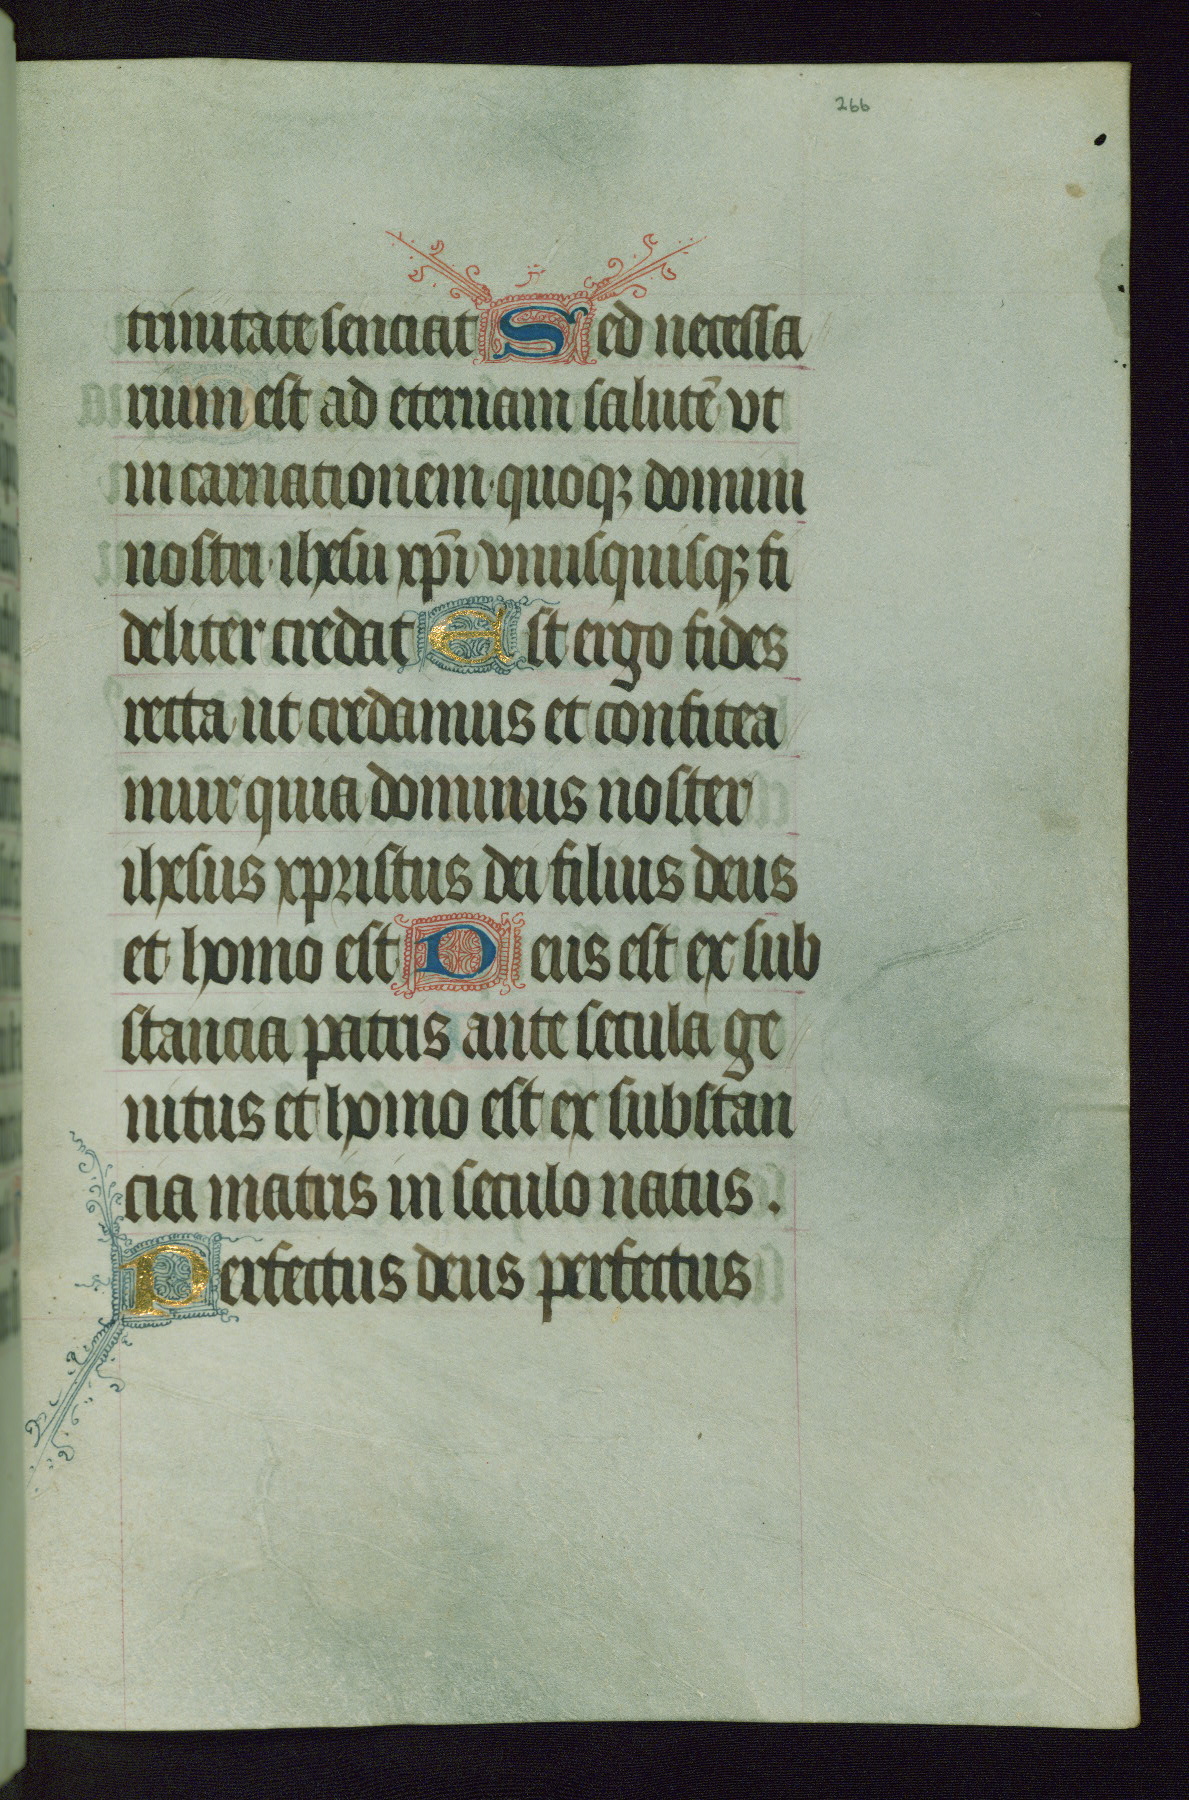 266
trinitate senciat Sed necessa
rium est ad eternam salutē vt
in carnationem quoqꝫ domini
nostri ihesu xp̄i vnusquisqꝫ fi
deliter credat Est ergo fides
recta ut credamus et confitea
mur quia dominus noster
ihesus xpristus dei filius deus
et homo est Deus est ex sub
stancia patris ante secula ge
nitus et homo est ex substan
cia matris in seculo natus .
Perfectus deus perfectus